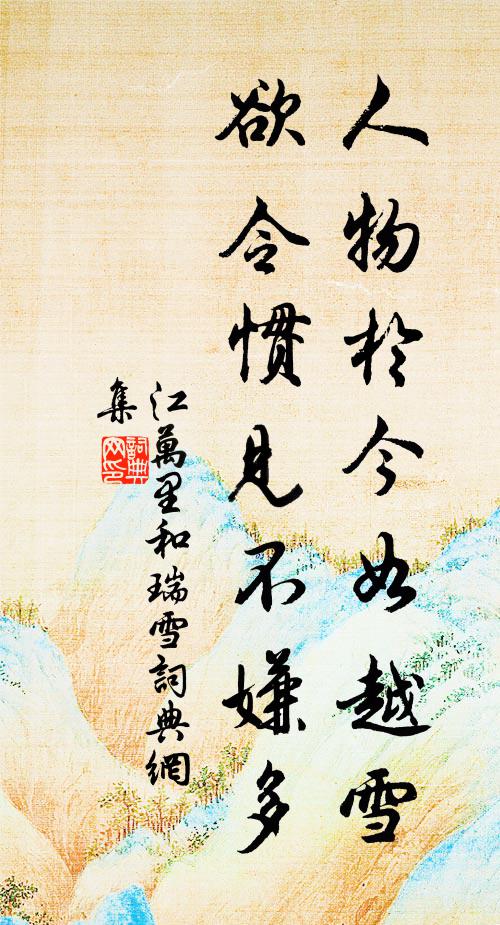 人物於今如越雪
欲令慣見不嫌多
江萬里和瑞雪詞典網
集
詞典
网印